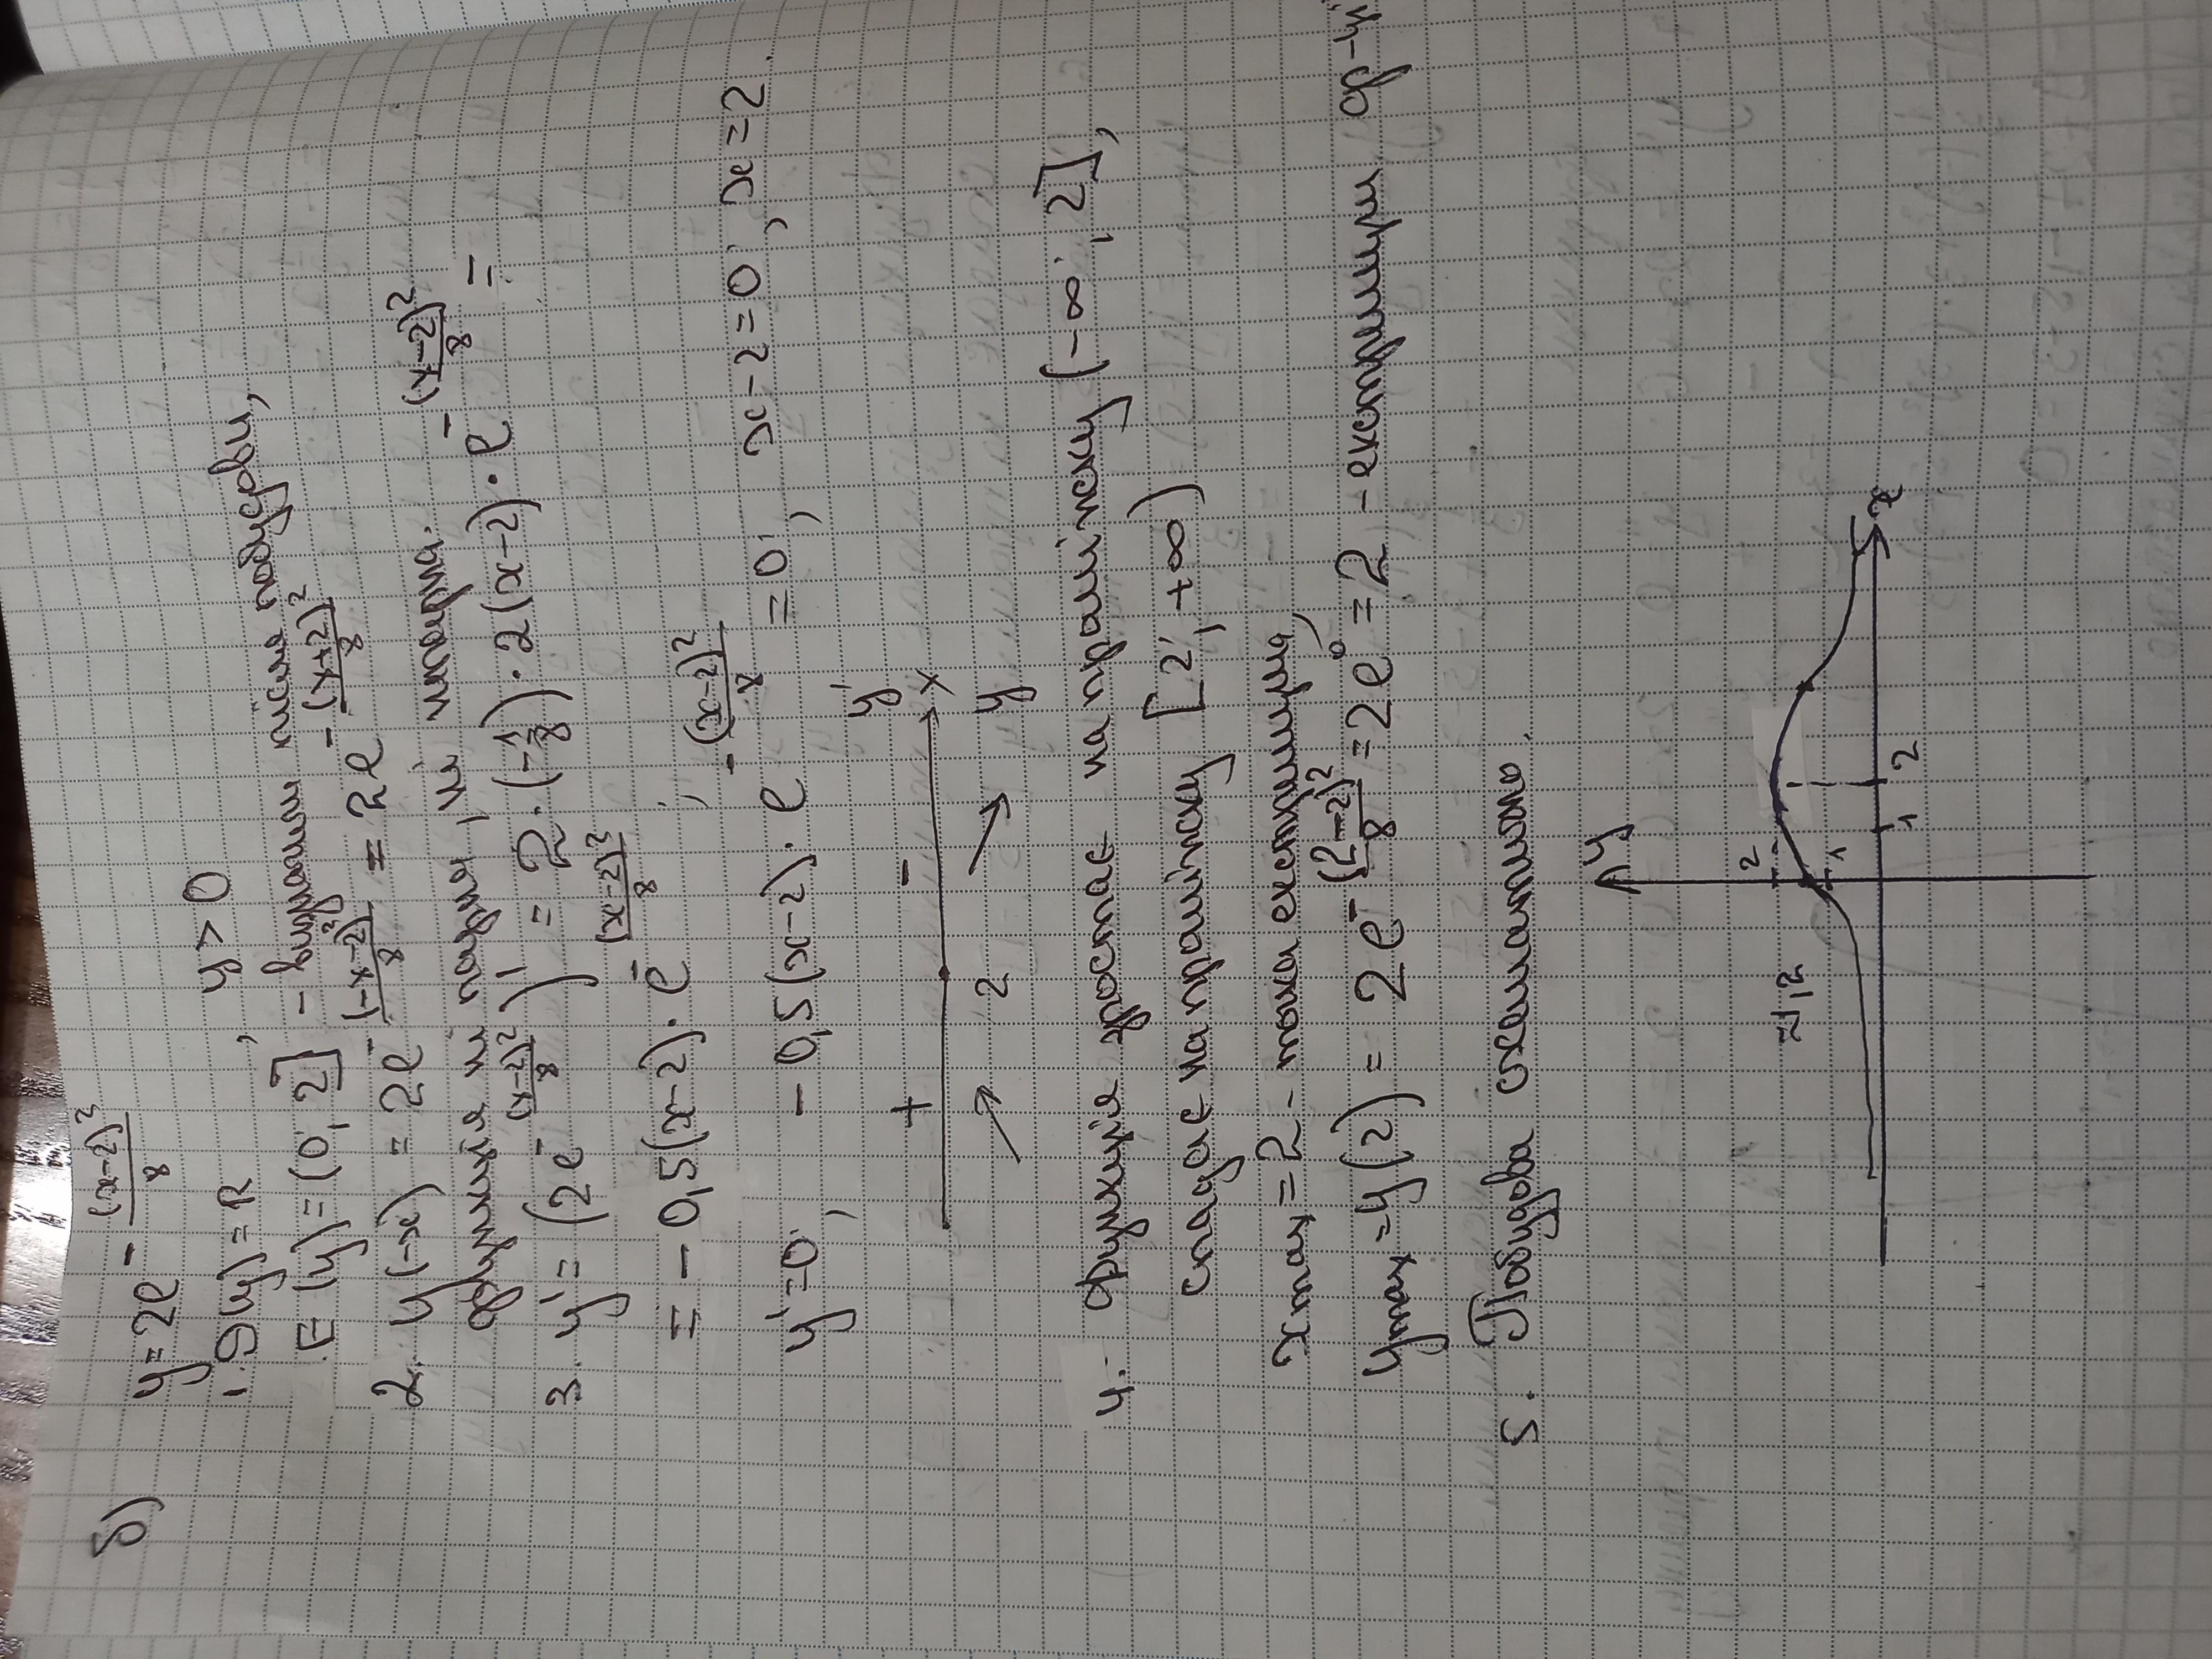 б)
y = 2e^{-\frac{(x-2)^2}{8}}
1. D(y) = R, y > 0
E(y) = (0; 2] - знатоди після побудови,
2. y(-x) = 2e^{-\frac{(-x-2)^2}{8}} = 2e^{-\frac{(x+2)^2}{8}}
функція ні парна, ні парна.
3. y' = (2e^{-\frac{(x-2)^2}{8}})' = 2·(-\frac{1}{8})·2(x-2)·e^{-\frac{(x-2)^2}{8}} =
= -0,5(x-2)·e^{-\frac{(x-2)^2}{8}};
y' = 0; -0,5(x-2)·e^{-\frac{(x-2)^2}{8}} = 0; x-2=0; x=2.
+ - y'
2 x
y
4. функція зростає на проміжку (-∞; 2],
спадає на проміжку [2; +∞)
x max = 2 - точка екстремума,
y max = y(2) = 2e^{-\frac{(2-2)^2}{8}} = 2e^0 = 2 - екстремум ф-ції
5. Побудова схематично.
y
2
≈1,2
1
1 2 x